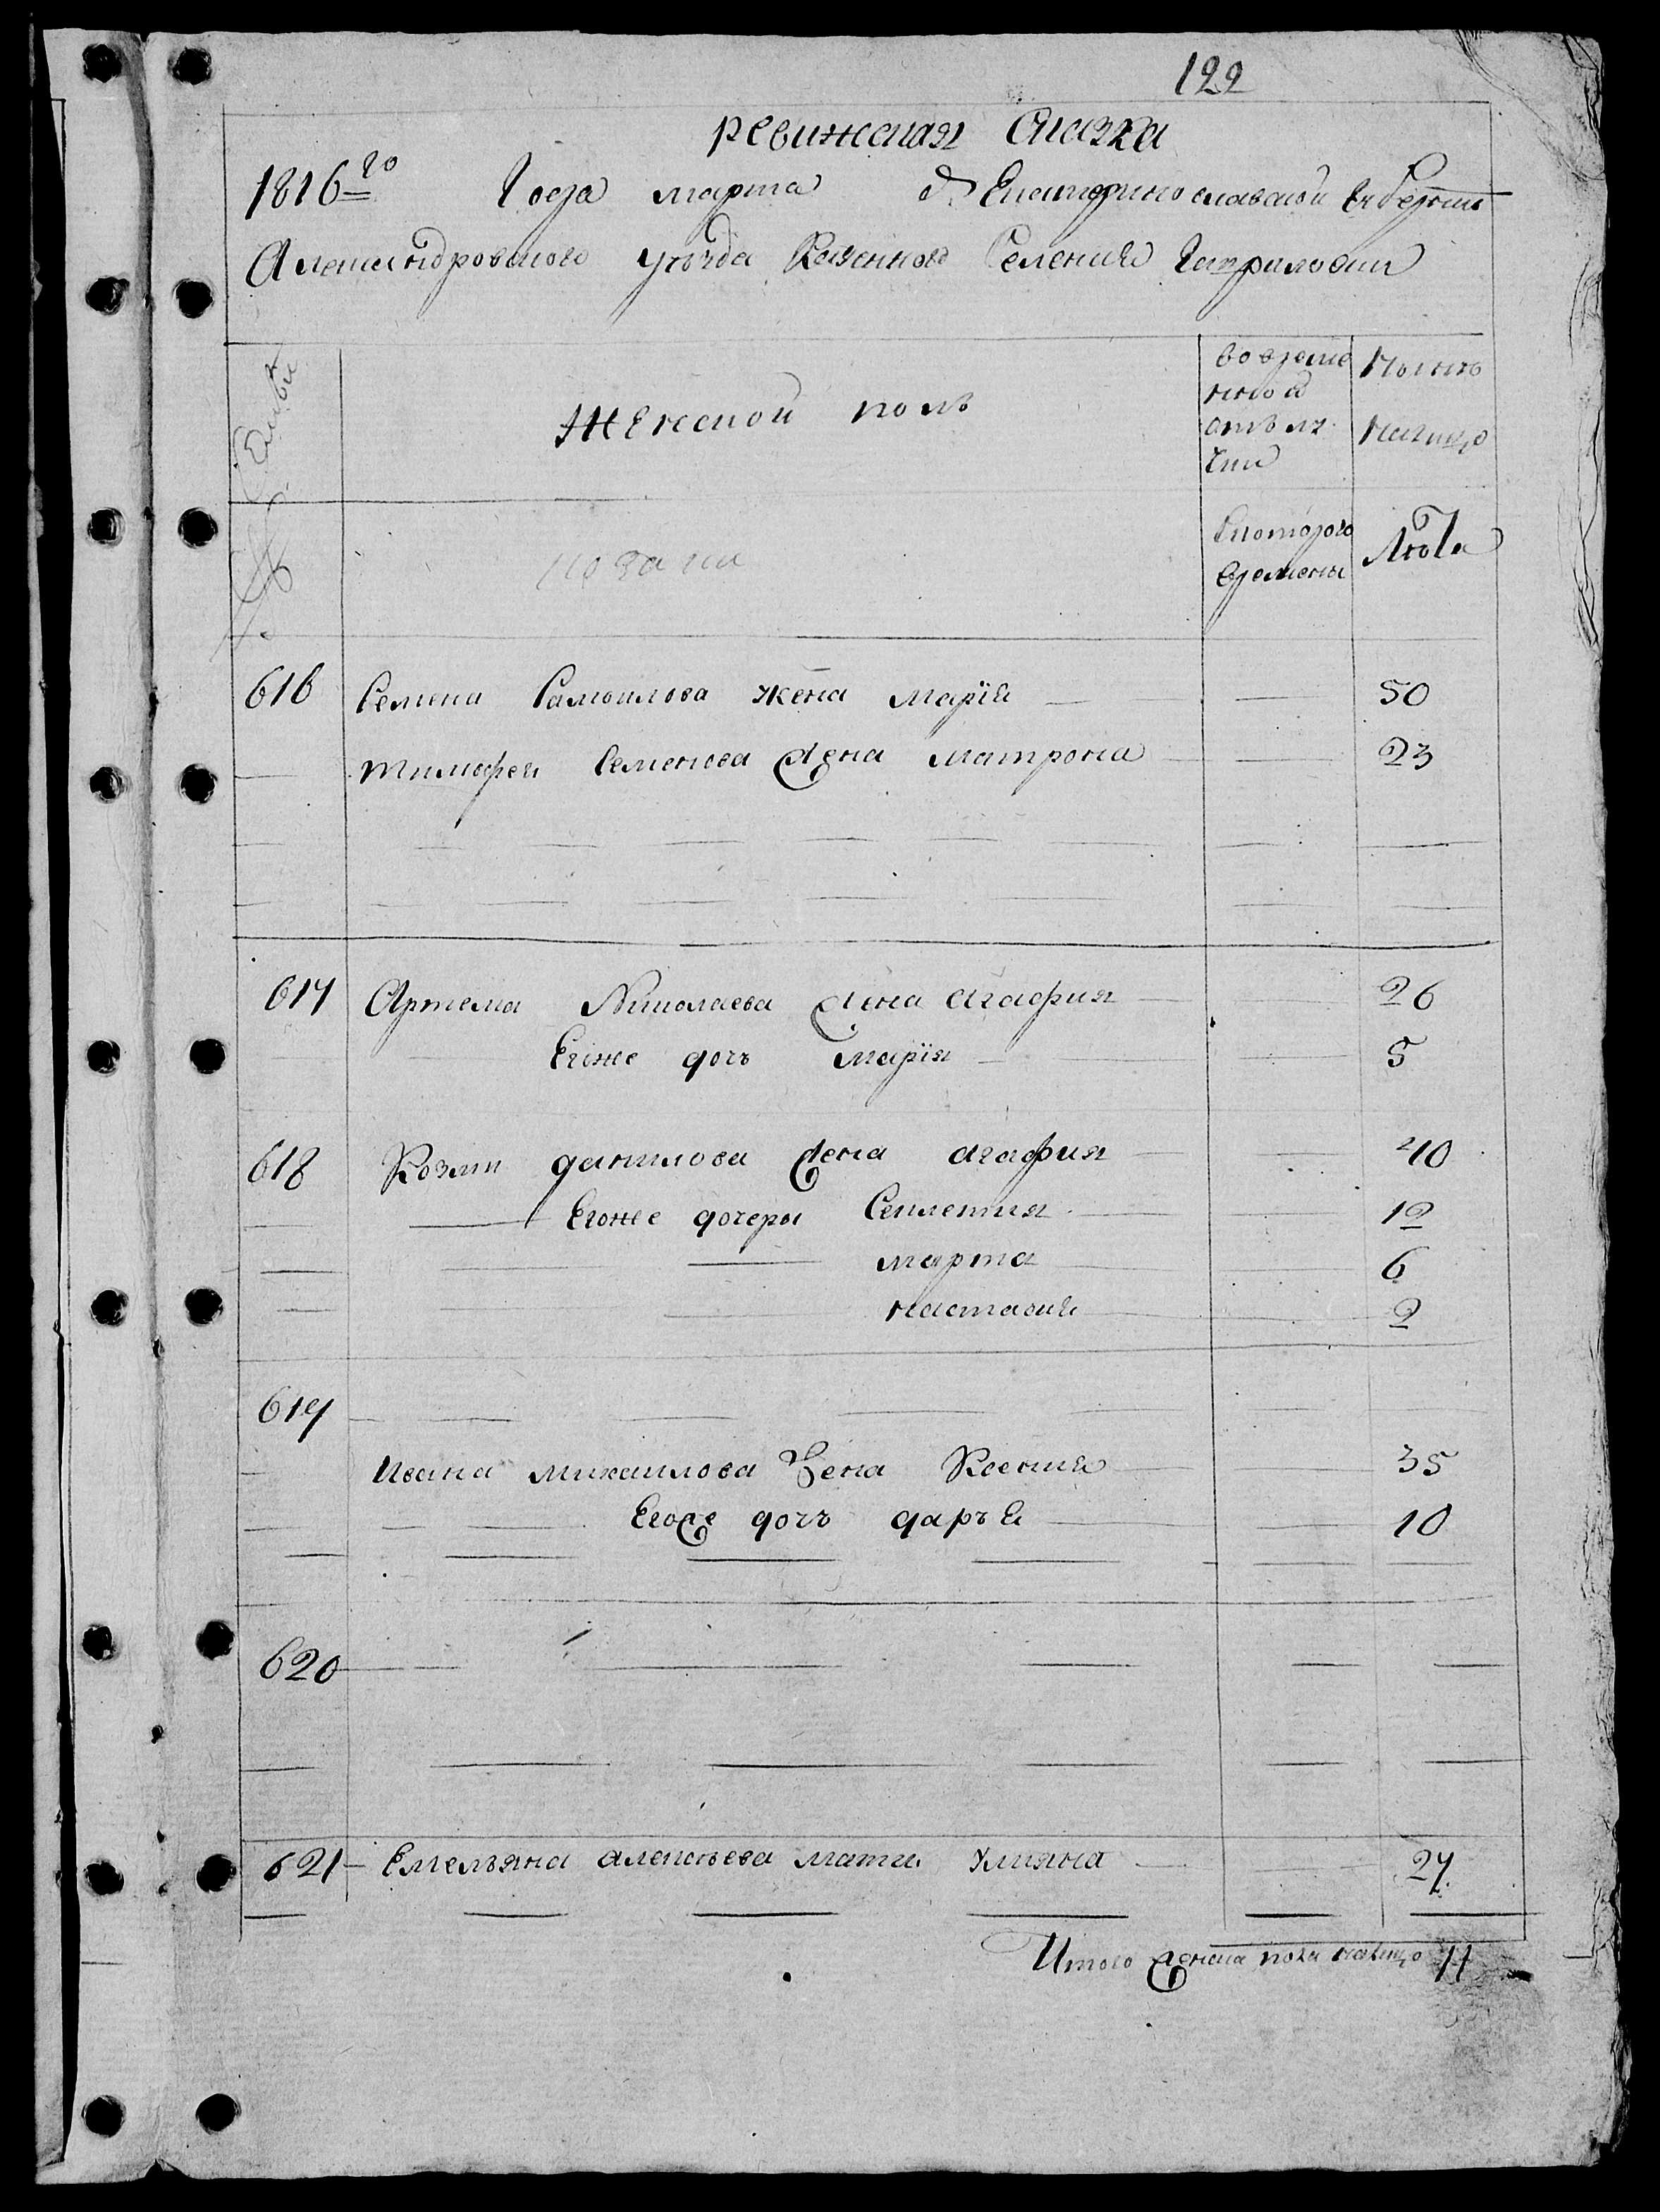 122
ревижская Сказка
1816го Года марта д Екатеринославской губернии
Александровского уезда Казенного Селения Гавриловки
Семьи
Женской полъ
во време
нной
отълу
чки
Ныне
налицо
козаки
Скоторого
времени
Лѣта
616 Семена Самоилова жена Марїя 50
Тимофея Семенова жена матрона 23
617 Артема Николаева жена агафия 26
Егоже дочъ Марїя 5
618 Козми данилова жена агафия 40
Егоже дочеры Секлетия 12
марта 6
настасия 2
619
Ивана михаилова жена Ксения 35
Егоже дочъ даръя 10
620
621 Емельяна алексѣева мати улияна 27
Итого женска пола налицо 11